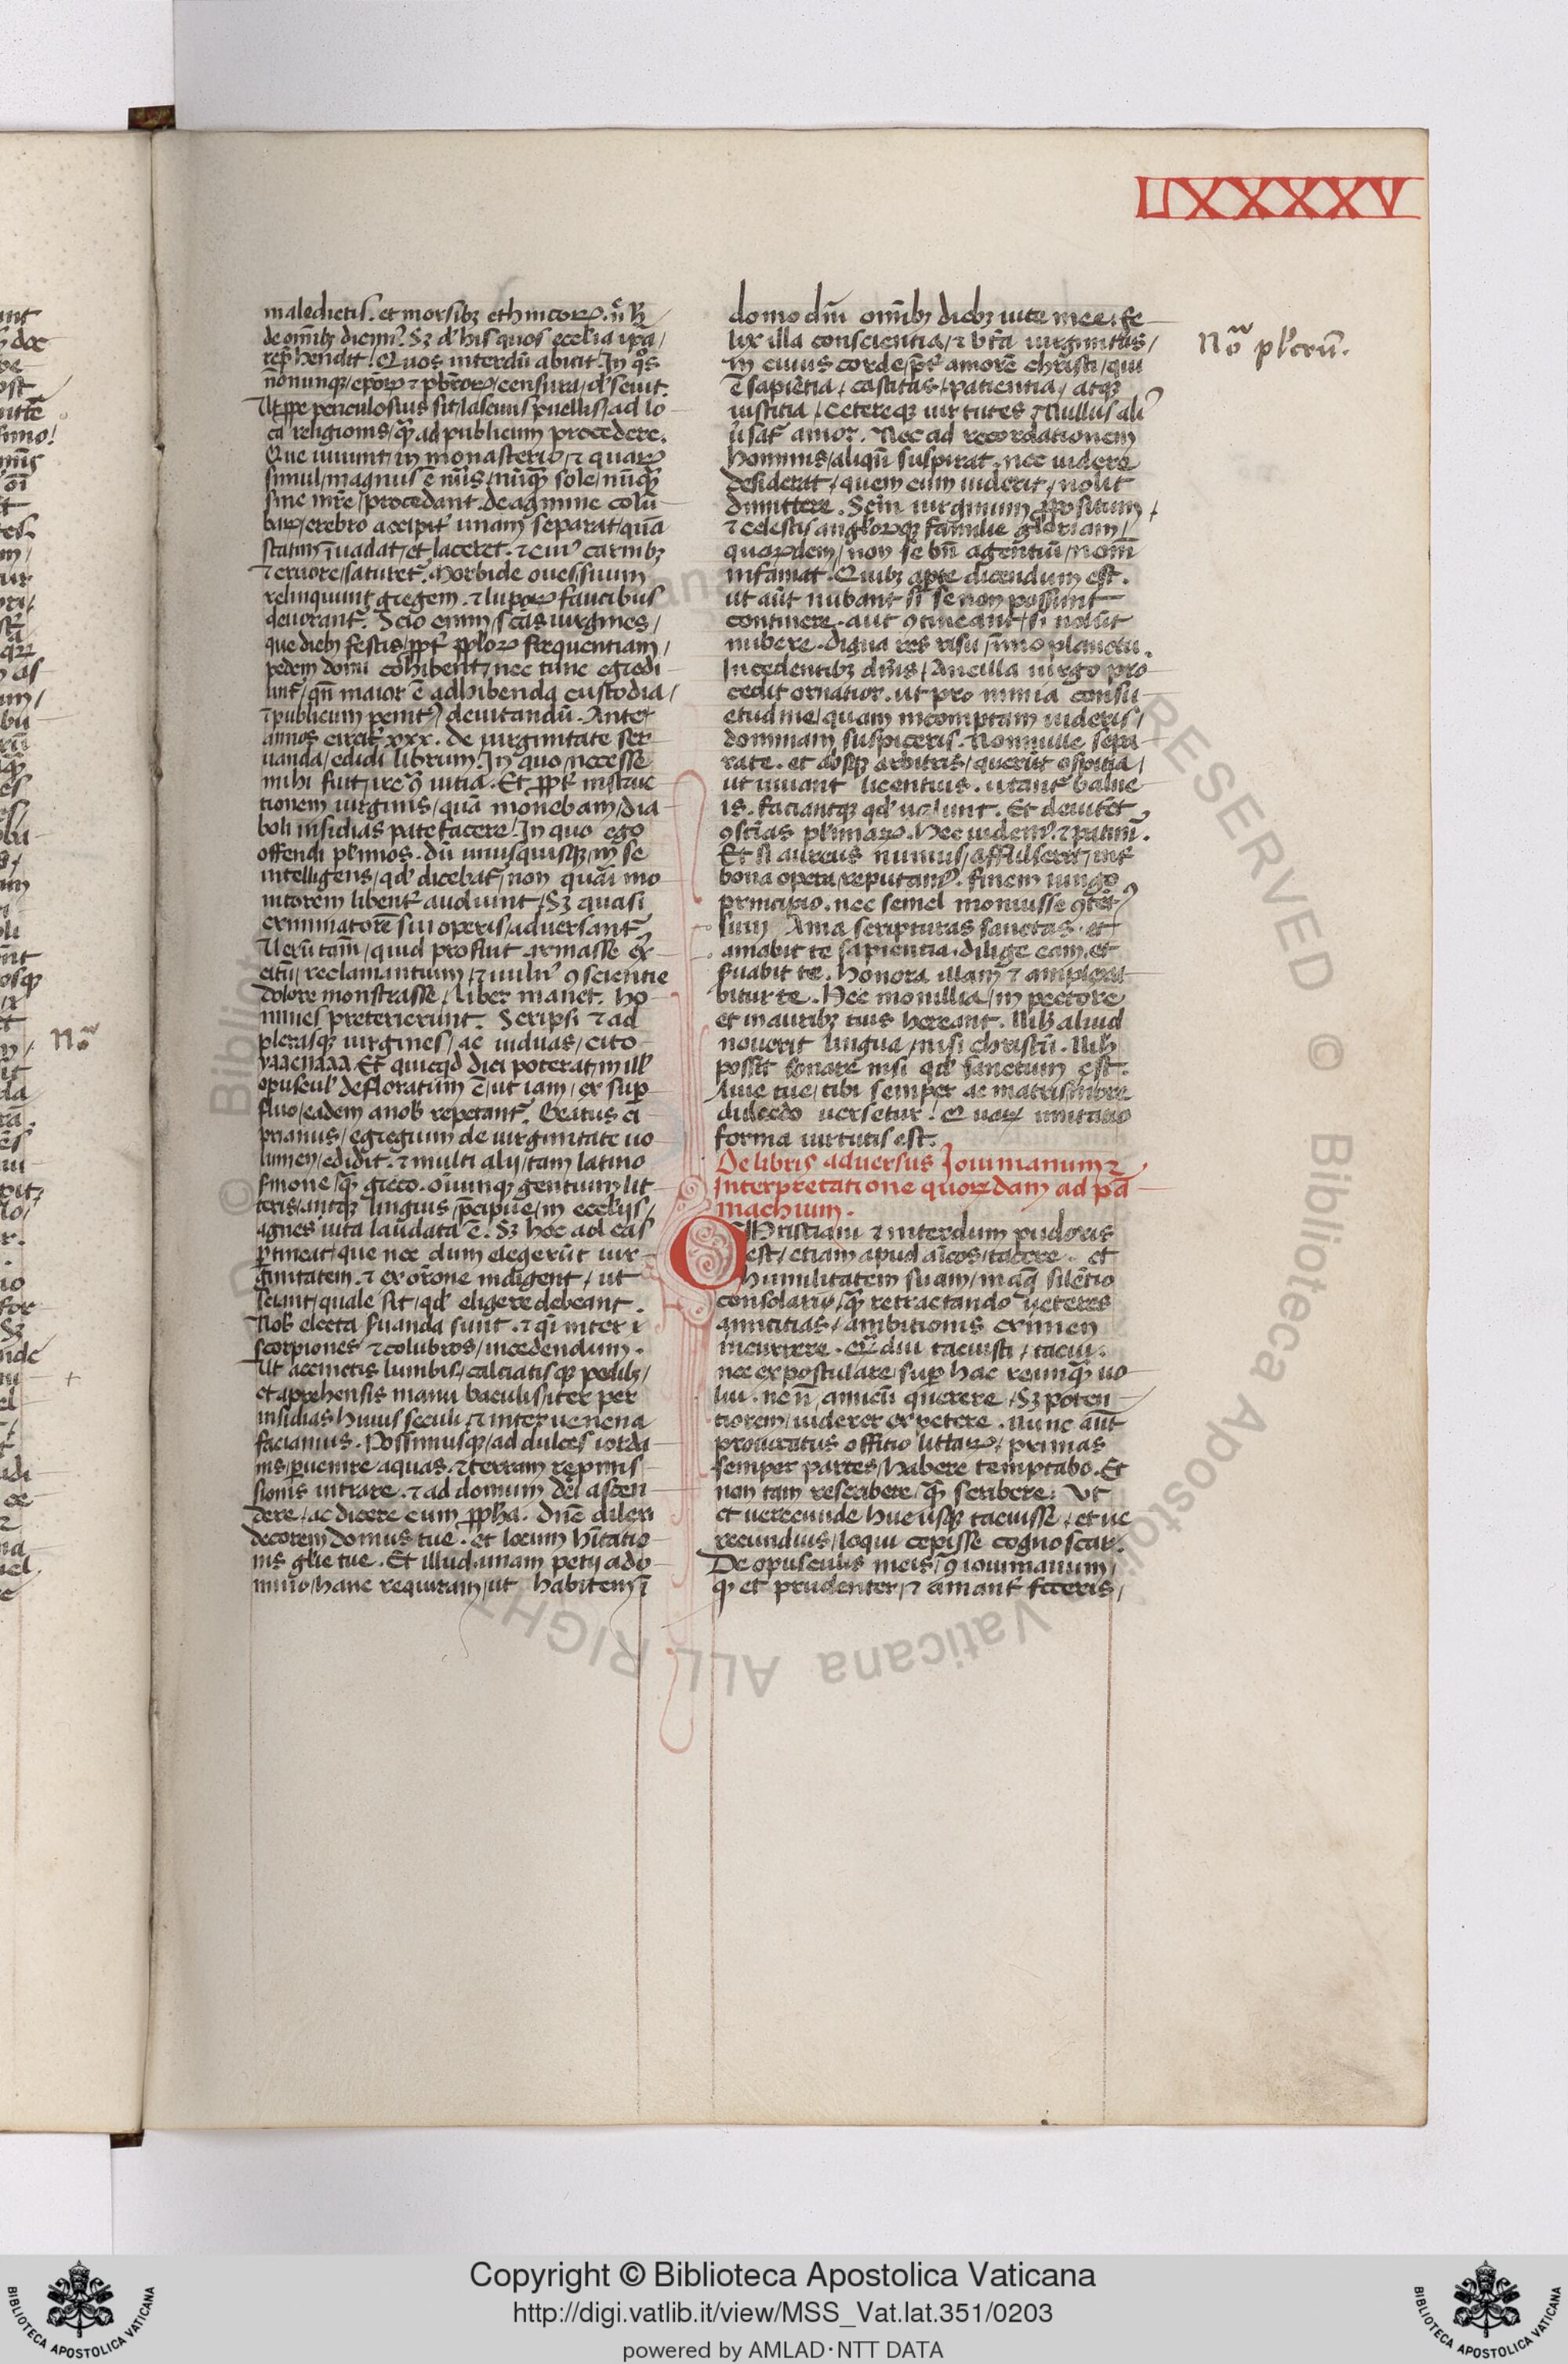 LXXXXV
maledictis. et morsibꝫ ethnicoꝝ. n̄
de om̄ibꝫ dicim̾. Sꝫ d̓ his quos eccl̓ia ip̄a /
rep̄hendit. Quos interdū abicit. In q̓s
nōnunqꝫ / ep̄oꝝ ⁊ pb̄roꝝ / censura / d̓seuit.
Ut ꝓpe periculosius sit / lasciuis puellis / ad lo
ca religionis / qꝫ̄ ad publicum procedere.
Que uiuunt / in monasterio / ⁊ quaꝝ
simul / magnus ē nūis / nūqꝫ̄ sole / nūqꝫ̄
sine mr̄e / procedant. de agmine colū
baꝝ / crebro accipit̾ unam separat / quā
statim īuadat / et laceret. ⁊ eiu̾ carnibꝫ
⁊ cruore / saturet̾. Morbide oues / suum
relinquunt gregem. ⁊ lupoꝝ faucibus
deuorant̾. Scio enim / sc̄as uirgines /
que diebꝫ festis / ꝓpt̾ ppl̓oꝝ frequentiam /
pedem domi cohibent / nec tunc egredi
unt̾ / qn̄ maior ē adhibenda custodia /
⁊ publicum penit̾ / deuitandū. Ante
annos circit̾ xxx. de uirginitate ser
uanda / edidi librum. In quo / necesse
mihi fuit / ire ꝯ̄ uitia. Et ꝓpt̾ instruc
tionem uirginis / quā monebam / dia
boli insidias patefacere. In quo ego
offendi pl̓imos. dū unusquisqꝫ / in se
intelligens / qd̓ dicebat̾ / non quasi mo
nitorem libent̾ audiunt / Sꝫ quasi
criminatorē sui operis / aduersant̾
Uerūtam̄ / quid profiut armasse ex̾
citū / reclamantium / ⁊ uuln̾ ꝯscientie
dolore monstrasse. Liber manet. Ho
mines preterierunt. Scripsi ⁊ ad
plerasqꝫ uirgines / ac uiduas / cito
Et quicqd̓ dici poterat / in ill̓
opuscul̓ defloratum ē / ut iam / ex sup̱
fluo / eadem a nob̓ repetant̾. Beatus ci
prianus / egregium de uirginitate uo
lumen / edidit. ⁊ multi alij / tam latino
s̾mone / qꝫ̄ greco. oīumqꝫ gentium lit
teris / antiqꝫ linguis / p̄cipue / in eccl̓ijs /
agnes uita laudata ē. Sꝫ hoc ad eas
p̱tineat / que nec dum elegerūt uir
ginitatem. ⁊ exor̄one indigent / ut
sciant / quale sit / qd̓ eligere debeant.
Nob̓ electa s̾uanda sunt. ⁊ q̓i inter
scorpiones ⁊ colubros / incedendum.
Ut accinctis lumbis / calciatisqꝫ pedibꝫ /
et apprehensis manu baculis / iter per
insidias huius seculi / ⁊ inter uenena
faciamus. Possimusqꝫ / ad dulces iorda
nis / p̱uenire aquas. ⁊ terram repmis
sionis intrare. ⁊ ad domum dei ascen
dere / ac dicere cum ꝓph̄a. Dn̄e dilexi
decorem domus tue. et locum h̄itatio
nis gl̓ie tue. Et illud. unam petij a do
mino / hanc requiram / ut habitem ī
domo dn̄i om̄ibꝫ diebꝫ uite mee. fe
lix illa conscientia / ⁊ b̄ta uirginitas /
in cuius corde / p̄t̾ amorē christi / qui
ē sapiētia / castitas / patientia / atqꝫ
iustitia / cetereqꝫ uirtutes / Nullus ali̾
ūsat̾ amor. Nec ad recordationem
hominis / aliqn̄ suspirat. nec uidere
desiderat / quem cum uiderit / nolit
dimittere. Scm̄ uirginum ꝓpositum /
⁊ celestis angl̓oꝝqꝫ familie gloriam /
quarūdem / non se bn̄ agentiū / nom̄
infamat. Quibꝫ ap̱te dicendum est.
ut aūt nubant si se non possunt
continere. aut ꝯtineant / si nolūt
nubere. Digna res risu / īmo planctu.
Incedentibꝫ dn̄is / Ancilla uirgo pro
cedit ornatior. ut pro nimia consu
etudine / quam incomptam uideris /
dominam suspiceris. Nonnulle sepa
rate. et absqꝫ arbitris / querūt ospitia /
ut uiuant licentius. utant̾ balne
is. faciantqꝫ qd̓ uolunt. Et deuitēt
ꝯsciās pl̓imaꝝ. Hec uidem̾. ⁊ patim̾.
Et si aureus numus / affulserit / int̾
bona opera / reputam̾. Finem iungo
principio. nec semel monuisse ꝯtēt̾
sum. Ama scripturas sanctas. et
amabit te sapientia. dilige eam. et
s̾uabit te. Honora illam / ⁊ amplexa
bitur te. Hec monillia / in pectore
et in auribꝫ tuis hereant. Nil̓ aliud
nouerit lingua / nisi christū. Nil̓
possit sonare nisi qd̓ sanctum est.
Auie tue / tibi semper ac matris in ore
dulcedo uersetur. Quaꝝ imitatio
forma uirtutis est.
De libris aduersus Iouinianum ⁊
interpretatione quorūdam ad pā
machium.
Christiani ⁊ interdum pudoris
est / etiam apud aīcos / tacere. et
humilitatem suam / magꝭ silētio
consolari / qꝫ̄ retractando ueteres
amicitias / ambitionis crimen
incurrere. Qꝫ̄diu tacuisti / tacui.
nec expostulare / sup̱ hac re unqꝫ̄ uo
lui. ne n̄ amicū querere / Sꝫ poten
tiorem / uiderer expetere. Nunc aūt
prouocatus offitio litt̾aꝝ / primas
semper partes / habere temptabo. Et
non tam rescribere / qꝫ̄ scribere. Ut
et uerecunde hucusqꝫ tacuisse / et ue
recundius / loqui cepisse cognoscar.
De opusculis meis / ꝯ̄ iouinianum /
qꝫ et prudenter / ⁊ amant̾ feceris /
No̾ pl̓crū.
No̾
Copyright © Biblioteca Apostolica Vaticana
http://digi.vatlib.it/view/MSS_Vat.lat.351/0203
powered by AMLAD·NTT DATA
BIBLIOTECA APOSTOLICA VATICANA
BIBLIOTECA APOSTOLICA VATICANA